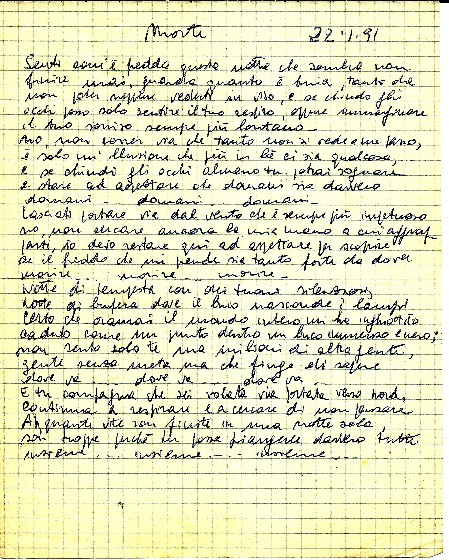 Morte 22.1.91
Senti com'è fredda questa notte che sembra non
finire mai, guarda quanto è buia, tanto da
non poter neppure vederti in viso, e se chiudo gli
occhi posso solo sentire il tuo respiro, oppure immaginare
il tuo sorriso sempre più lontano
No, non correr via che tanto non si vede a un passo,
è solo un'illusione che più in là ci sia qualcosa,
e se chiudi gli occhi almeno tu potrai sognare
e stare ad aspettare che domani sia davvero
domani - domani - domani -
Lasciati portare via dal vento che è sempre più impetuoso
no, non cercare ancora la mia mano a cui aggrap-
parti, io devo restare qui ad aspettare per scoprire
se il freddo che mi prende sia tanto forte da dover
morire - morire - morire -
Notte di tempesta con dei tuoni silenziosi,
notte di bufera dove il buio nasconde i lampi
certo che oramai il mondo intero mi ha inghiottito
caduto come un punto dentro un buco immenso e nero;
non sento solo te ma milioni di altra gente,
gente senza meta ma che finge di sapere
dove va dove va dove va
E tu compagna che sei volata via portata verso nord,
continua a respirare e a cercare di non pensare
A quante vite son finite in una notte sola,
son troppe perché io possa piangerle davvero tutte
insieme... insieme... insieme...